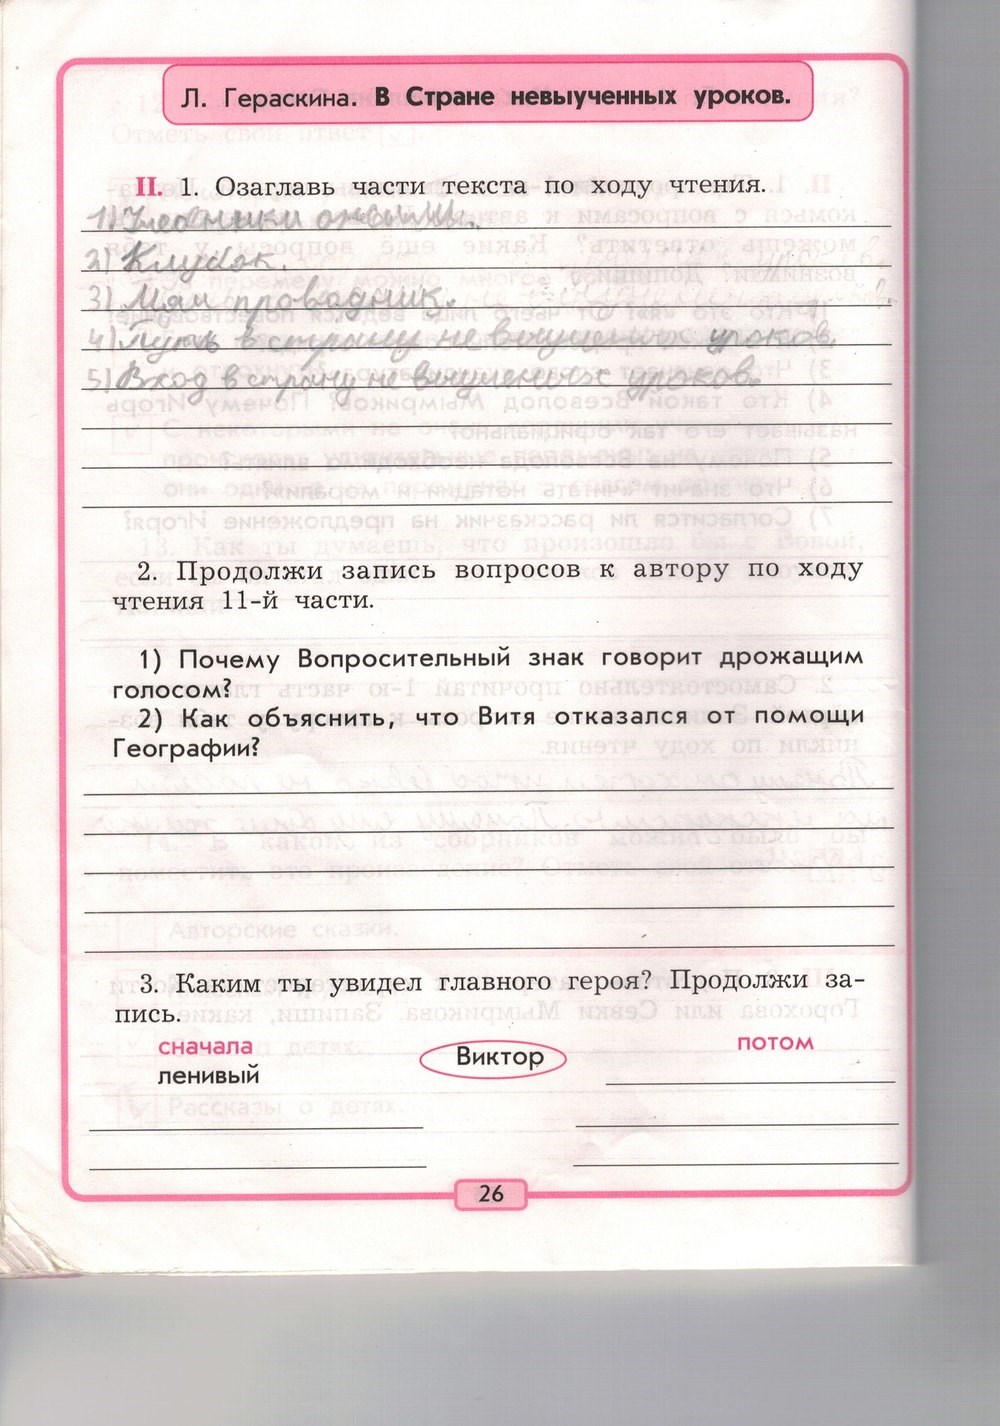 Л. Гераскина. В Стране невыученных уроков.
II. 1. Озаглавь части текста по ходу чтения.
1) Учебники ожили.
2) Клубок.
3) Мям проводник.
4) Путь в страну не выученых уроков.
5) Вход в страну не выученых уроков.
2. Продолжи запись вопросов к автору по ходу
чтения 11-й части.
1) Почему Вопросительный знак говорит дрожащим
голосом?
2) Как объяснить, что Витя отказался от помощи
Географии?
3. Каким ты увидел главного героя? Продолжи за-
пись.
сначала Виктор потом
ленивый
26